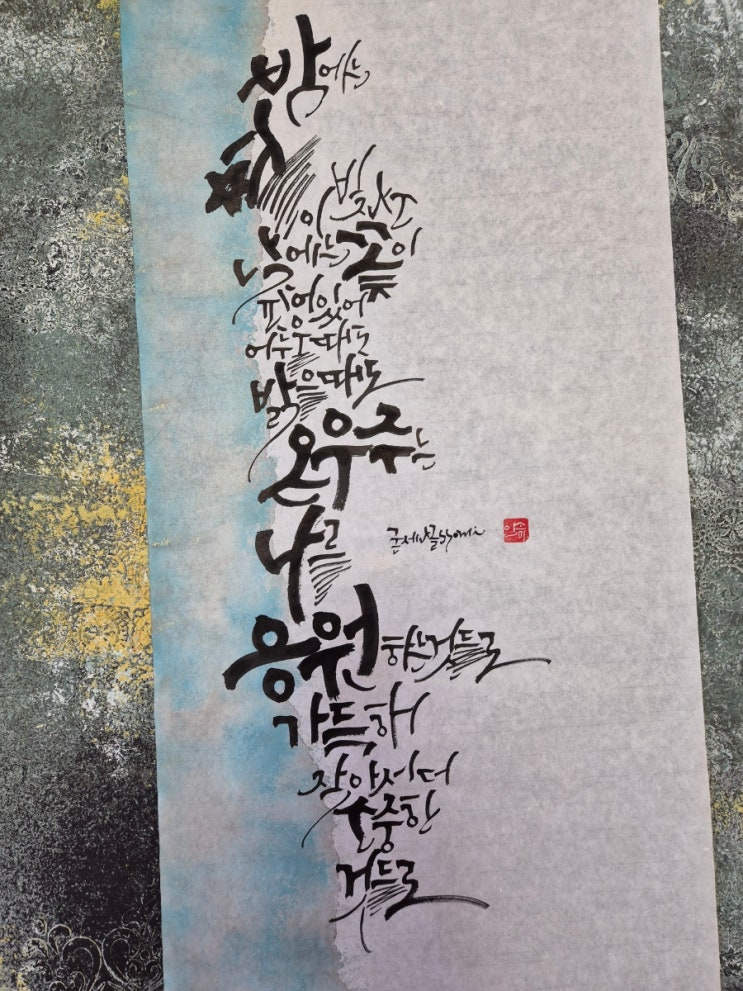 밤에는
별이
낮에는 꽃이
피어있어
어두울때도
밝을때도
온우주는
나를
응원하는것들로
가득해
작아서더
소중한
것들로